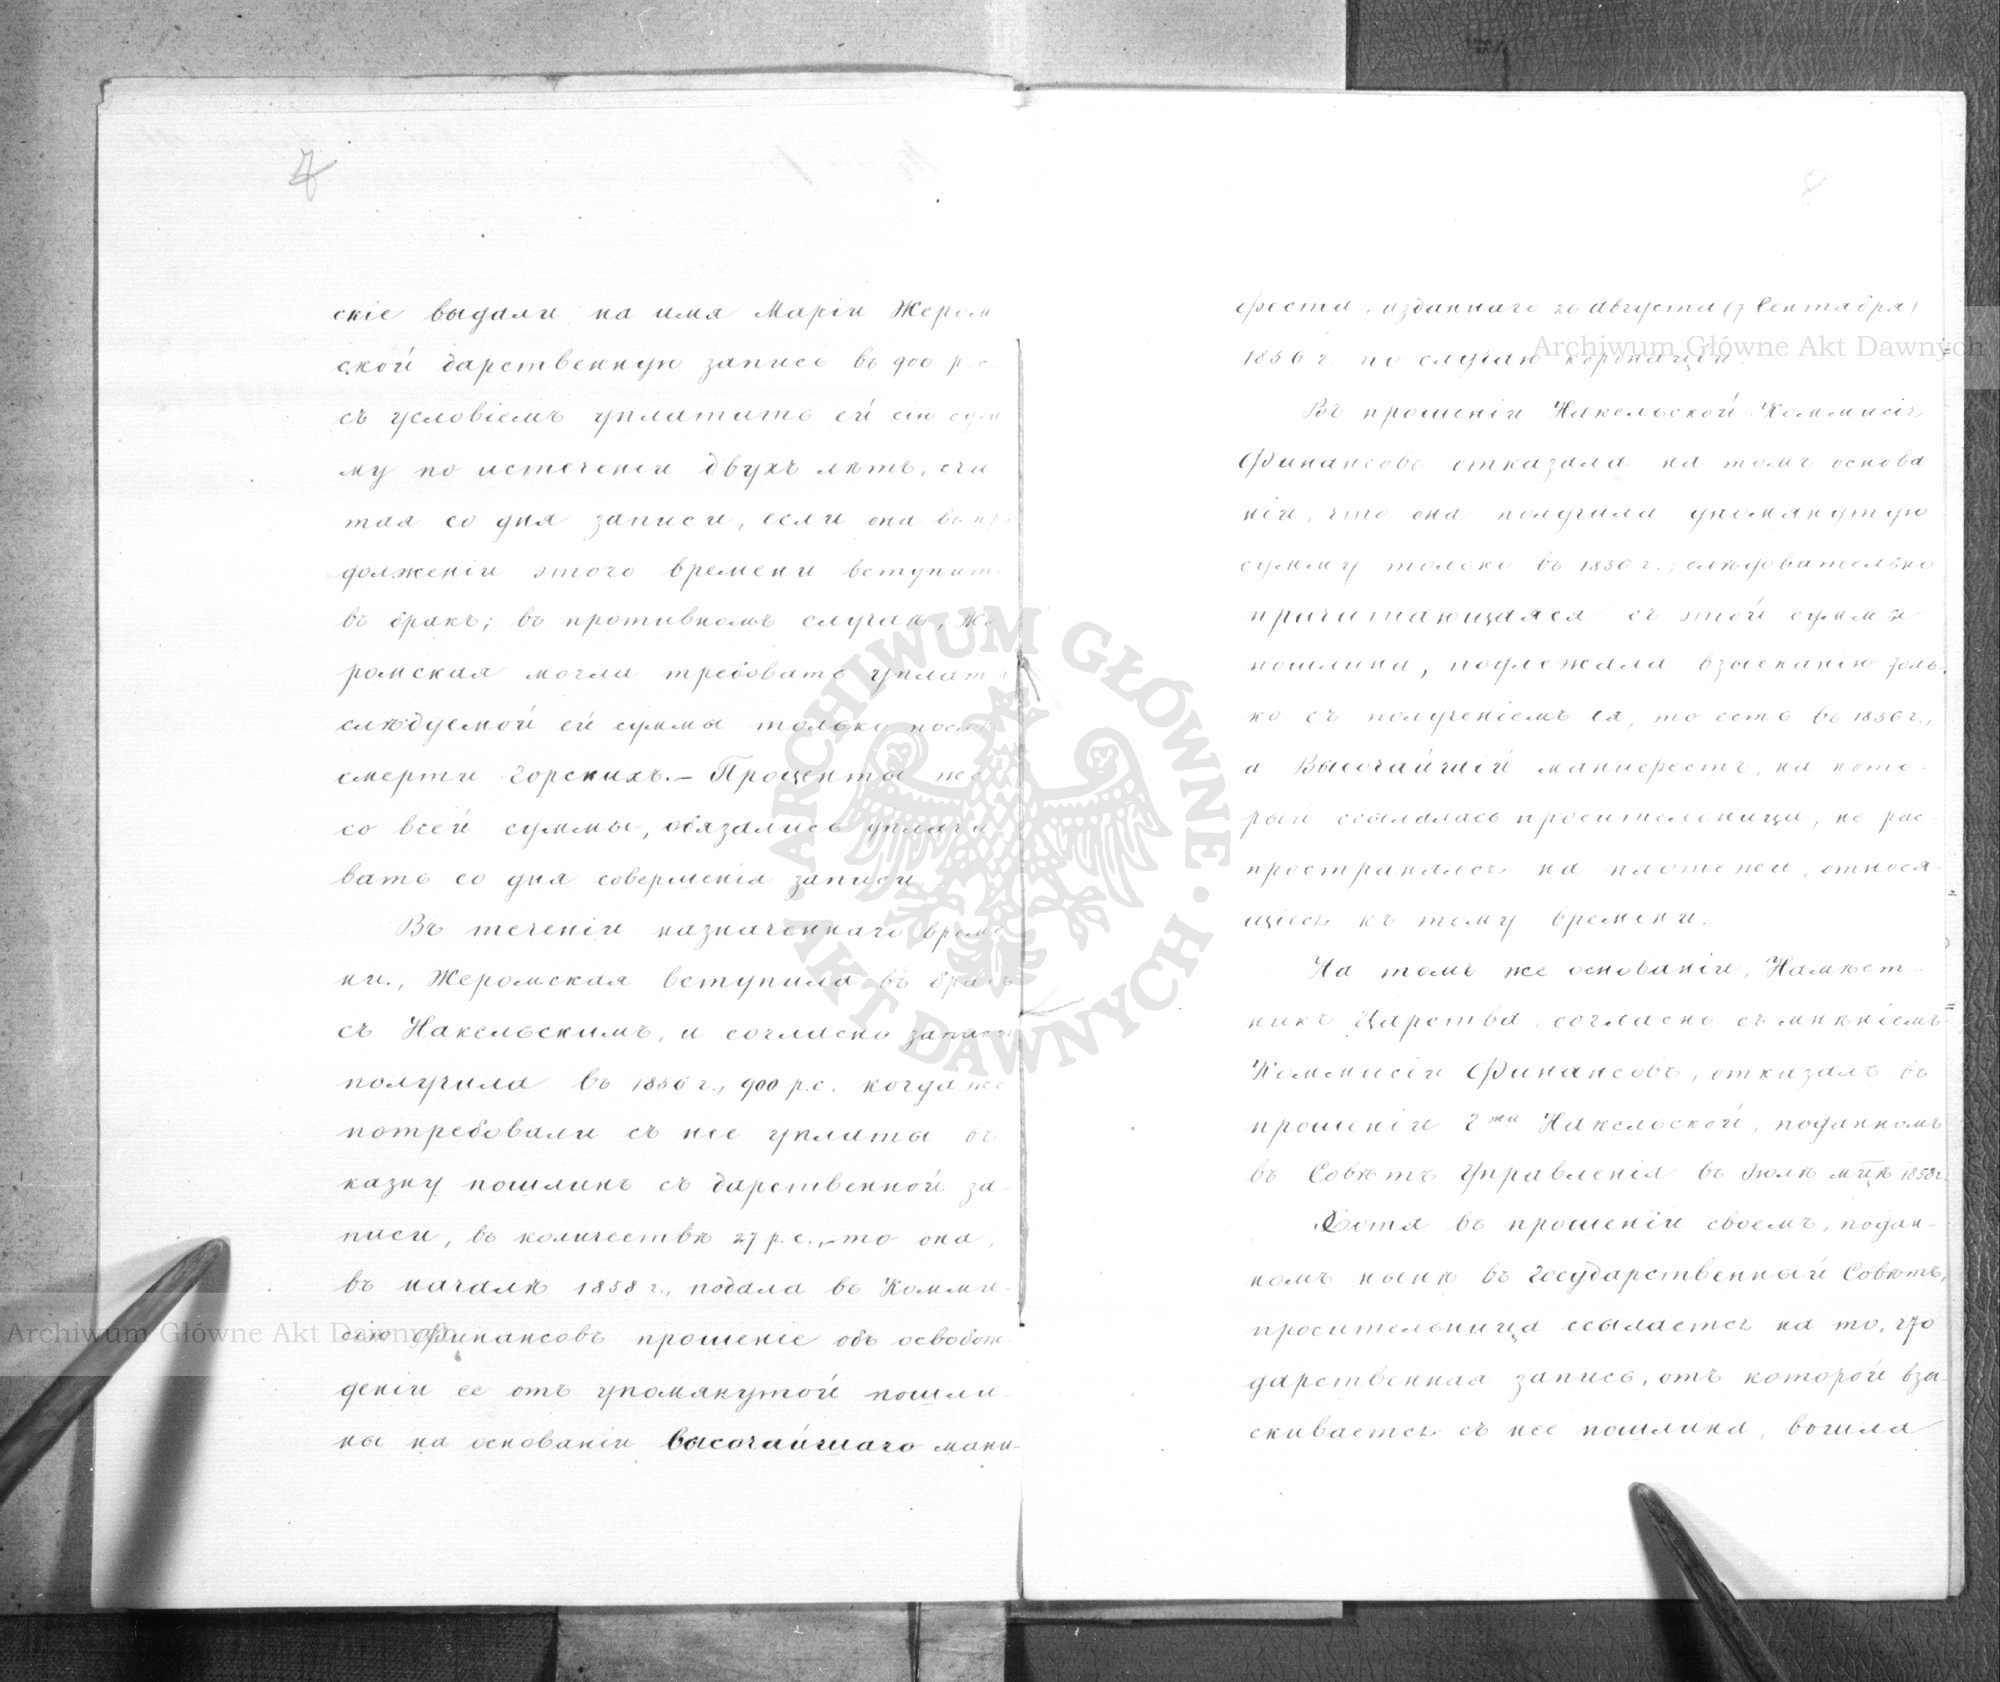 7
скіе выдали на имя Маріи Жером
ской дарственную запись въ 900 р. с.
съ условіемъ уплатить ей сію сум
му по истеченіи двухъ лѣтъ, счи
тая со дня записи, если она въ про
долженіи этого времени вступитъ
въ бракъ; въ противномъ случаѣ, Же
ромская могла требовать уплаты
слѣдуемой ей суммы только послѣ
смерти Горскихъ.— Проценты же
со всей суммы, обязались уплачи
вать со дня совершенія записи.
Въ теченіи назначеннаго време
ни, Жеромская вступила въ бракъ
съ Накельскимъ, и согласно записи
получила въ 1856 г., 900 р. с. когда же
потребовали съ нее уплаты въ
казну пошлинъ съ дарственной за-
писи, въ количествѣ 27 р. с.,— то она,
въ началѣ 1858 г., подала въ Комми-
сію Финансовъ прошеніе объ освобож-
деніи ее отъ упомянутой пошли-
ны на основаніи Высочайшаго мани-
8
феста, изданнаго 26 Августа (7 Сентября)
1856 г. по случаю коронаціи.
Въ прошеніи Накельской Коммисія
Финансовъ отказала на томъ основа
ніи, что она получила упомянутую
сумму только въ 1856 г., слѣдовательно
причитающаяся съ этой суммы
пошлина, подлежала взысканію толь-
ко съ полученіемъ ея, то есть въ 1856 г.,
а Высочайшій манифестъ, на кото-
рый ссылалась просительница, не рас-
пространялся на платежи, относя-
щіеся къ тому времени.
На томъ же основаніи, Намѣст-
никъ Царства, согласно съ мнѣніемъ
Коммисіи Финансовъ, отказалъ въ
прошеніи Г-жи Накельской, поданномъ
въ Совѣтъ Управленія въ Іюлѣ мцѣ 1858 г.
Хотя въ прошеніи своемъ, подан-
номъ нынѣ въ Государственный Совѣтъ,
просительница ссылается на то, что
дарственная запись, отъ которой взы-
скивается съ нее пошлина, вошла
Archiwum Główne Akt Dawnych
Archiwum Główne Akt Dawnych
ARCHIWUM GŁÓWNE · AKT DAWNYCH ·